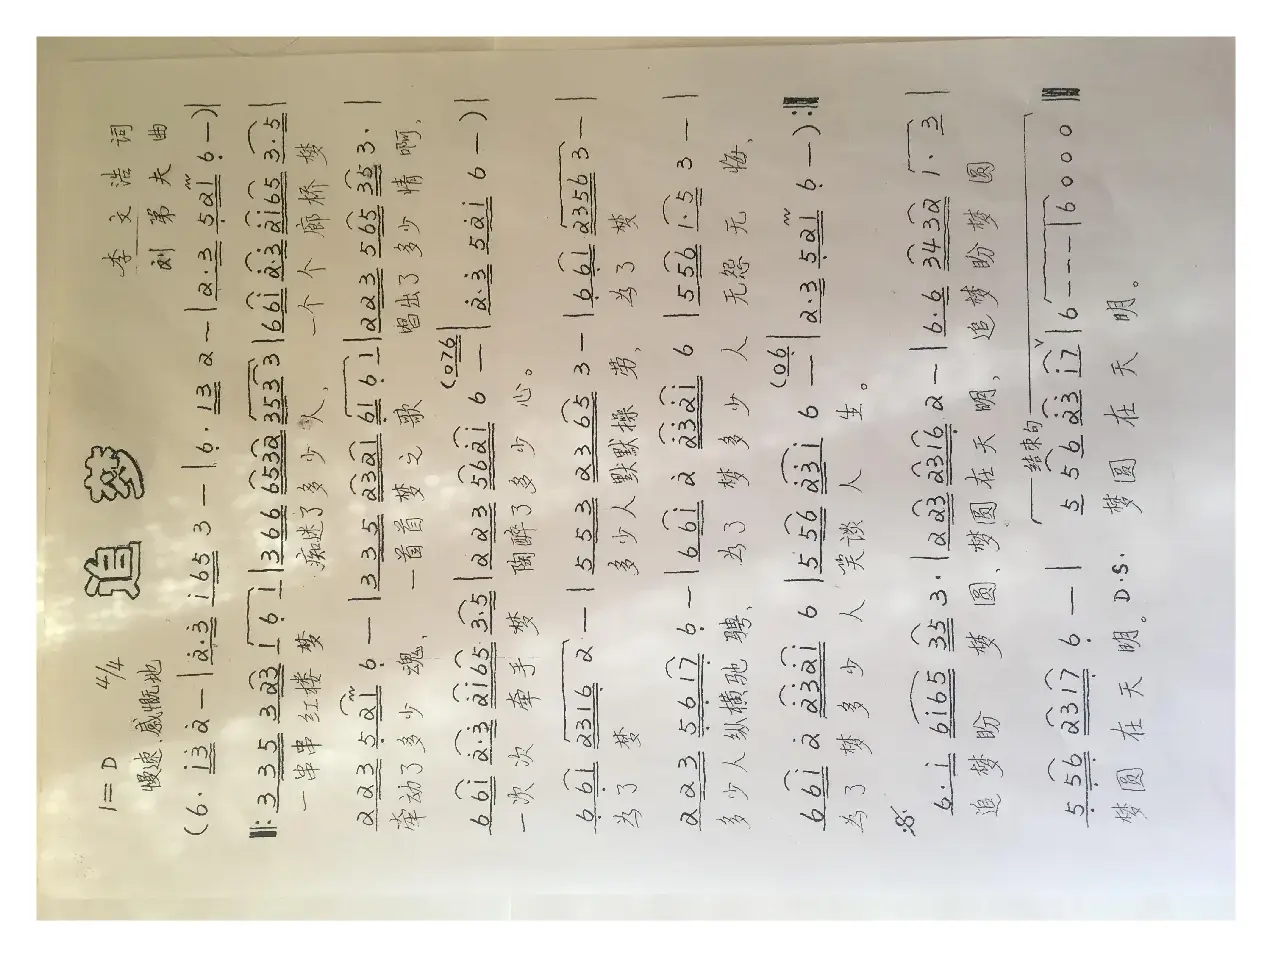 追 梦
1=D 4/4
慢速、感慨地
李 文 浩 词
刘 第 夫 曲
(6· i3 2 — | 2·3 i65 3 — | 6· 13 2 — | 2·3 521 6 — )|
‖: 3 3 5 323 1 6 1 | 366 6532 353 3 | 66i 2·3 2i65 3·5 |
一串串 红楼 梦 痴迷了多 少 人, 一个个 廊桥 梦
2 2 3 521 6 — | 3 3 5 2321 61 6 1 | 2 2 3 565 35 3· |
牵动了多 少 魂, 一首首 梦 之 歌 唱出了多少 情 啊,
66i 2·3 2i65 3·5 | 2 2 3 562i 6 (076 — | 2·3 52i 6 — )|
一次次 牵手 梦 陶醉了多 少 心。
6 6i 2316 2 — | 5 5 3 2365 3 — | 6 61 2356 3 —
为了 梦 多少人默默操 劳, 为了 梦
2 2 3 5617 6 — | 66i 2 232i 6 | 556 1·5 3 — |
多少人纵横驰 骋, 为了 梦多少 人 无怨 无 悔,
66i 2 232i 6 | 556 23i 6 (06 — | 2·3 521 6 — ):‖
为了 梦多少 人 笑谈 人 生。
6· i 6i65 35 3· | 223 2316 2 — | 6·6 3432 1· 3
追 梦盼 梦 圆, 梦圆在天 明, 追 梦盼梦 圆
结束句
556 2317 6 — | 5 56 23 i7 | 6 — — — | 6 0 0 0 ‖
梦圆 在天 明。D.S. 梦圆 在天 明。